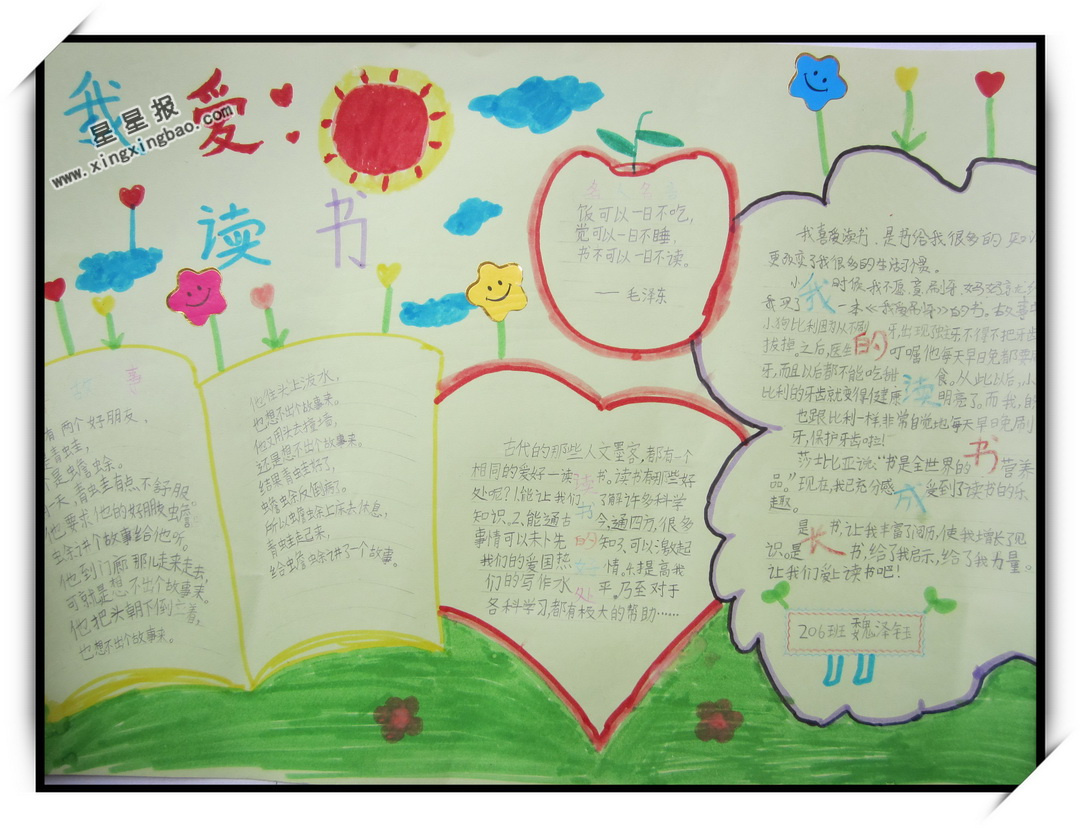 我爱
读书
星星报
www.xingxingbao.com
故事
有两个好朋友，
是青蛙，
个是蟾蜍。
一天，青蛙有点不舒服
他要求他的好朋友蟾
蜍讲个故事给他听。
他到门廊那儿走来走去，
可就是想不出个故事来。
他把头朝下倒立着，
也想不出个故事来。
他往头上泼水，
也想不出个故事来。
他又用头去撞墙，
还是想不出个故事来。
结果青蛙好了，
蟾蜍反倒病了。
所以蟾蜍上床去休息，
青蛙走起来，
给蟾蜍讲了一个故事。
名人名言
饭可以一日不吃，
觉可以一日不睡，
书不可以一日不读。
——毛泽东
读书的好处
古代的那些人文墨客，都有一个
相同的爱好一读书。读书有那些好
处呢？1.能让我们了解许多科学
知识。2.能通古今，通四方，很多
事情可以未卜先知。3.可以激起
我们的爱国热情。4.提高我
们的写作水平。乃至对于
各科学习，都有极大的帮助……
我的读书成长
我喜爱读书，是书给我很多的知识
更改变了我很多的生活习惯。
小时候，我不愿意刷牙，妈妈
一本《我爱刷牙》的书。故事中
小狗比利因为从不刷牙，出现蛀牙不得不把牙齿
拔掉。之后，医生叮嘱他每天早日免都要刷
牙，而且以后都不能吃甜食。从此以后，小
比利的牙齿就变得健康明亮了。而我，
也跟比利一样非常自觉地每天早日免刷
牙，保护牙齿啦！
莎士比亚说："书是全世界的营养
品。"现在，我已充分感受到了读书的乐
趣。
是书，让我丰富了阅历，使我增长了见
识。是书，给了我启示，给了我力量。
让我们爱上读书吧！
206班 魏泽钰